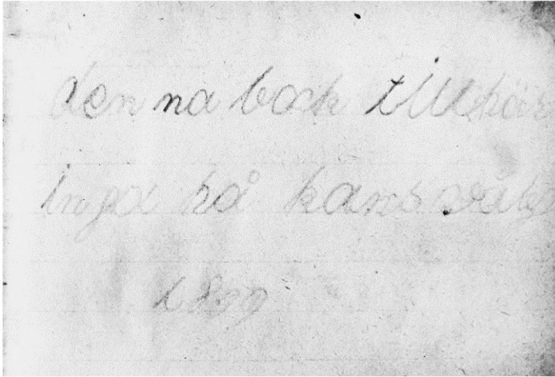 den na bock tillhör
inga hå kans
1899